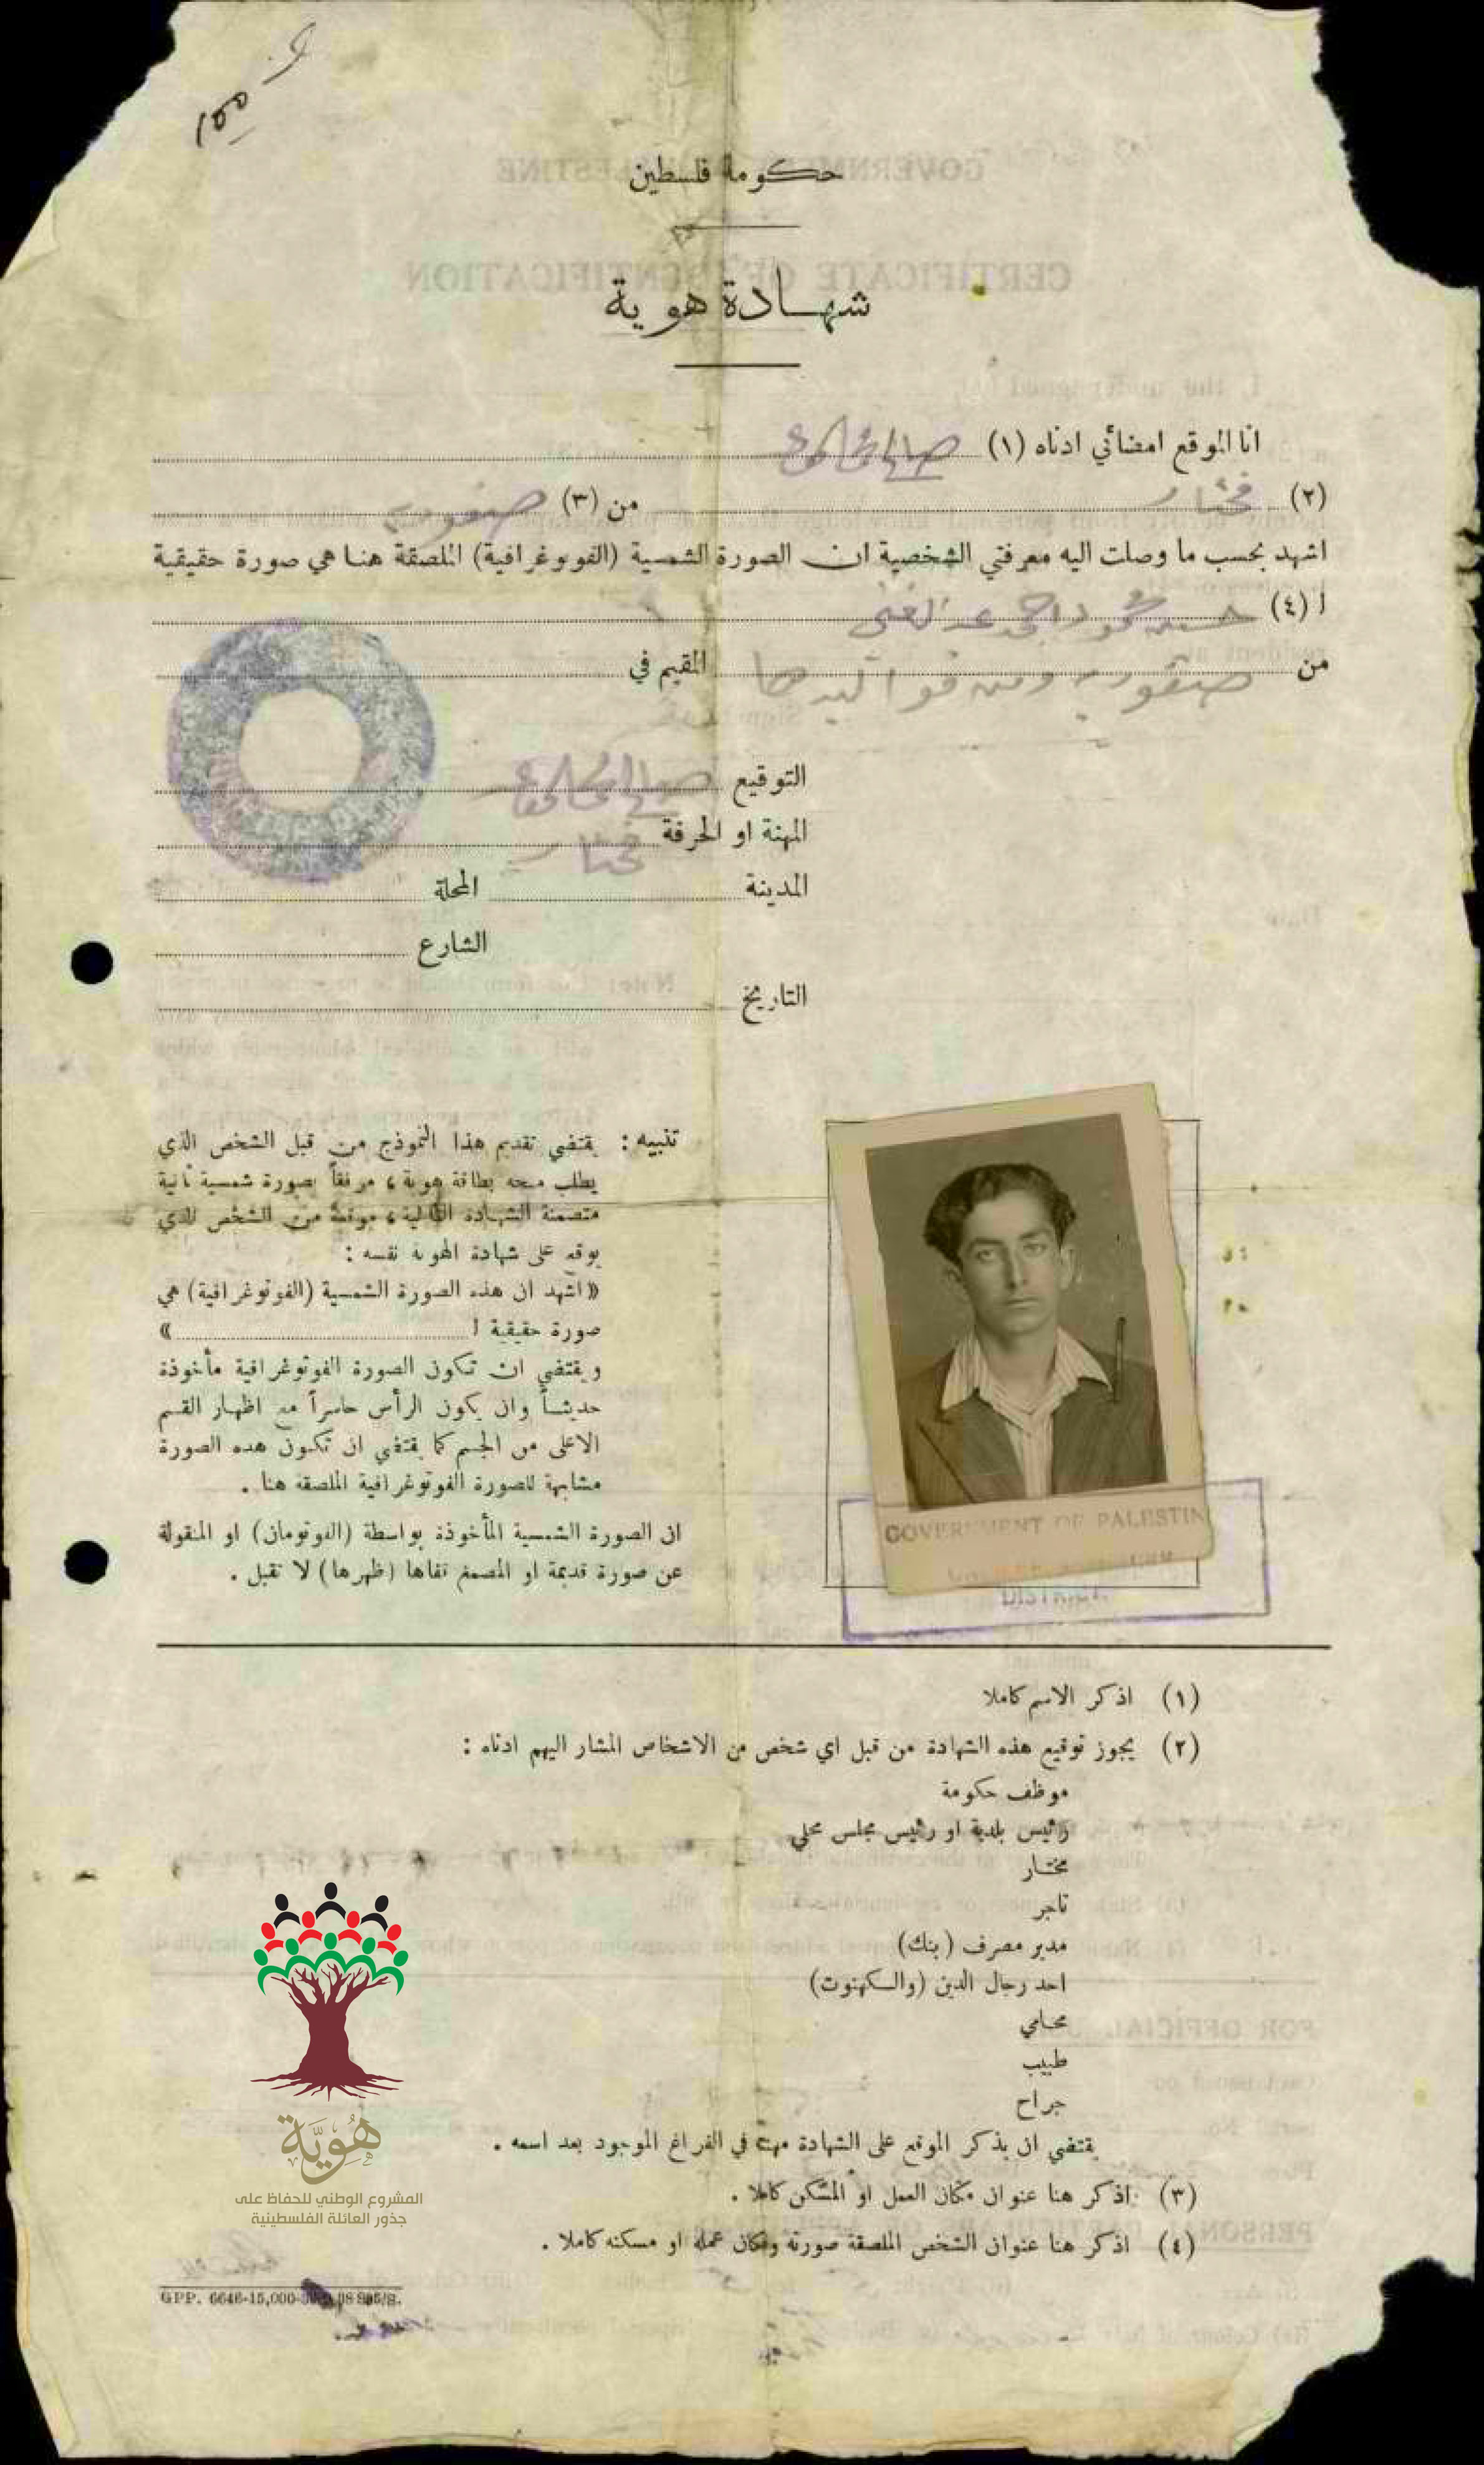 حكومة فلسطين
شهادة هوية
انا الموقع امضائي ادناه (١) صالح
(٢) مختار من (٣) صفورية
اشهد بحسب ما وصلت اليه معرفتي الشخصية ان الصورة الشمسية (الفوتوغرافية) الملصقة هنا هي صورة حقيقية
ا (٤) حسين محمود احمد عبد الغني
من صفورية ومن مواليدها المقيم في
التوقيع صالح
المهنة او الحرفة مختار
المدينة المحلة
الشارع
التاريخ
تنبيه : يقتضي تقديم هذا النموذج من قبل الشخص الذي
يطلب منحه بطاقة هوية ، مرفقاً بصورة شمسية ثانية
متضمنة الشهادة التالية ، موقعة من الشخص الذي
يوقع على شهادة الهوية نفسه :
« اشهد ان هذه الصورة الشمسية (الفوتوغرافية) هي
صورة حقيقية ا »
ويقتضي ان تكون الصورة الفوتوغرافية مأخوذة
حديثاً وان يكون الرأس حاسراً مع اظهار القسم
الاعلى من الجسم كما يقتضي ان تكون هذه الصورة
مشابهة للصورة الفوتوغرافية الملصقة هنا .
ان الصورة الشمسية المأخوذة بواسطة (الفوتومان) او المنقولة
عن صورة قديمة او المصمغ قفاها (ظهرها) لا تقبل .
GOVERNMENT OF PALESTIN
DISTRICT
(١) اذكر الاسم كاملا
(٢) يجوز توقيع هذه الشهادة من قبل اي شخص من الاشخاص المشار اليهم ادناه :
موظف حكومة
رئيس بلدية او رئيس مجلس محلي
مختار
تاجر
مدير مصرف (بنك)
احد رجال الدين (والكهنوت)
محامي
طبيب
جراح
يقتضي ان يذكر الموقع على الشهادة مهنته في الفراغ الموجود بعد اسمه .
(٣) اذكر هنا عنوان مكان العمل او المسكن كاملا .
(٤) اذكر هنا عنوان الشخص الملصقة صورته ومكان عمله او مسكنه كاملا .
GPP. 6646-15,000-
هُوِيَّة
المشروع الوطني للحفاظ على
جذور العائلة الفلسطينية